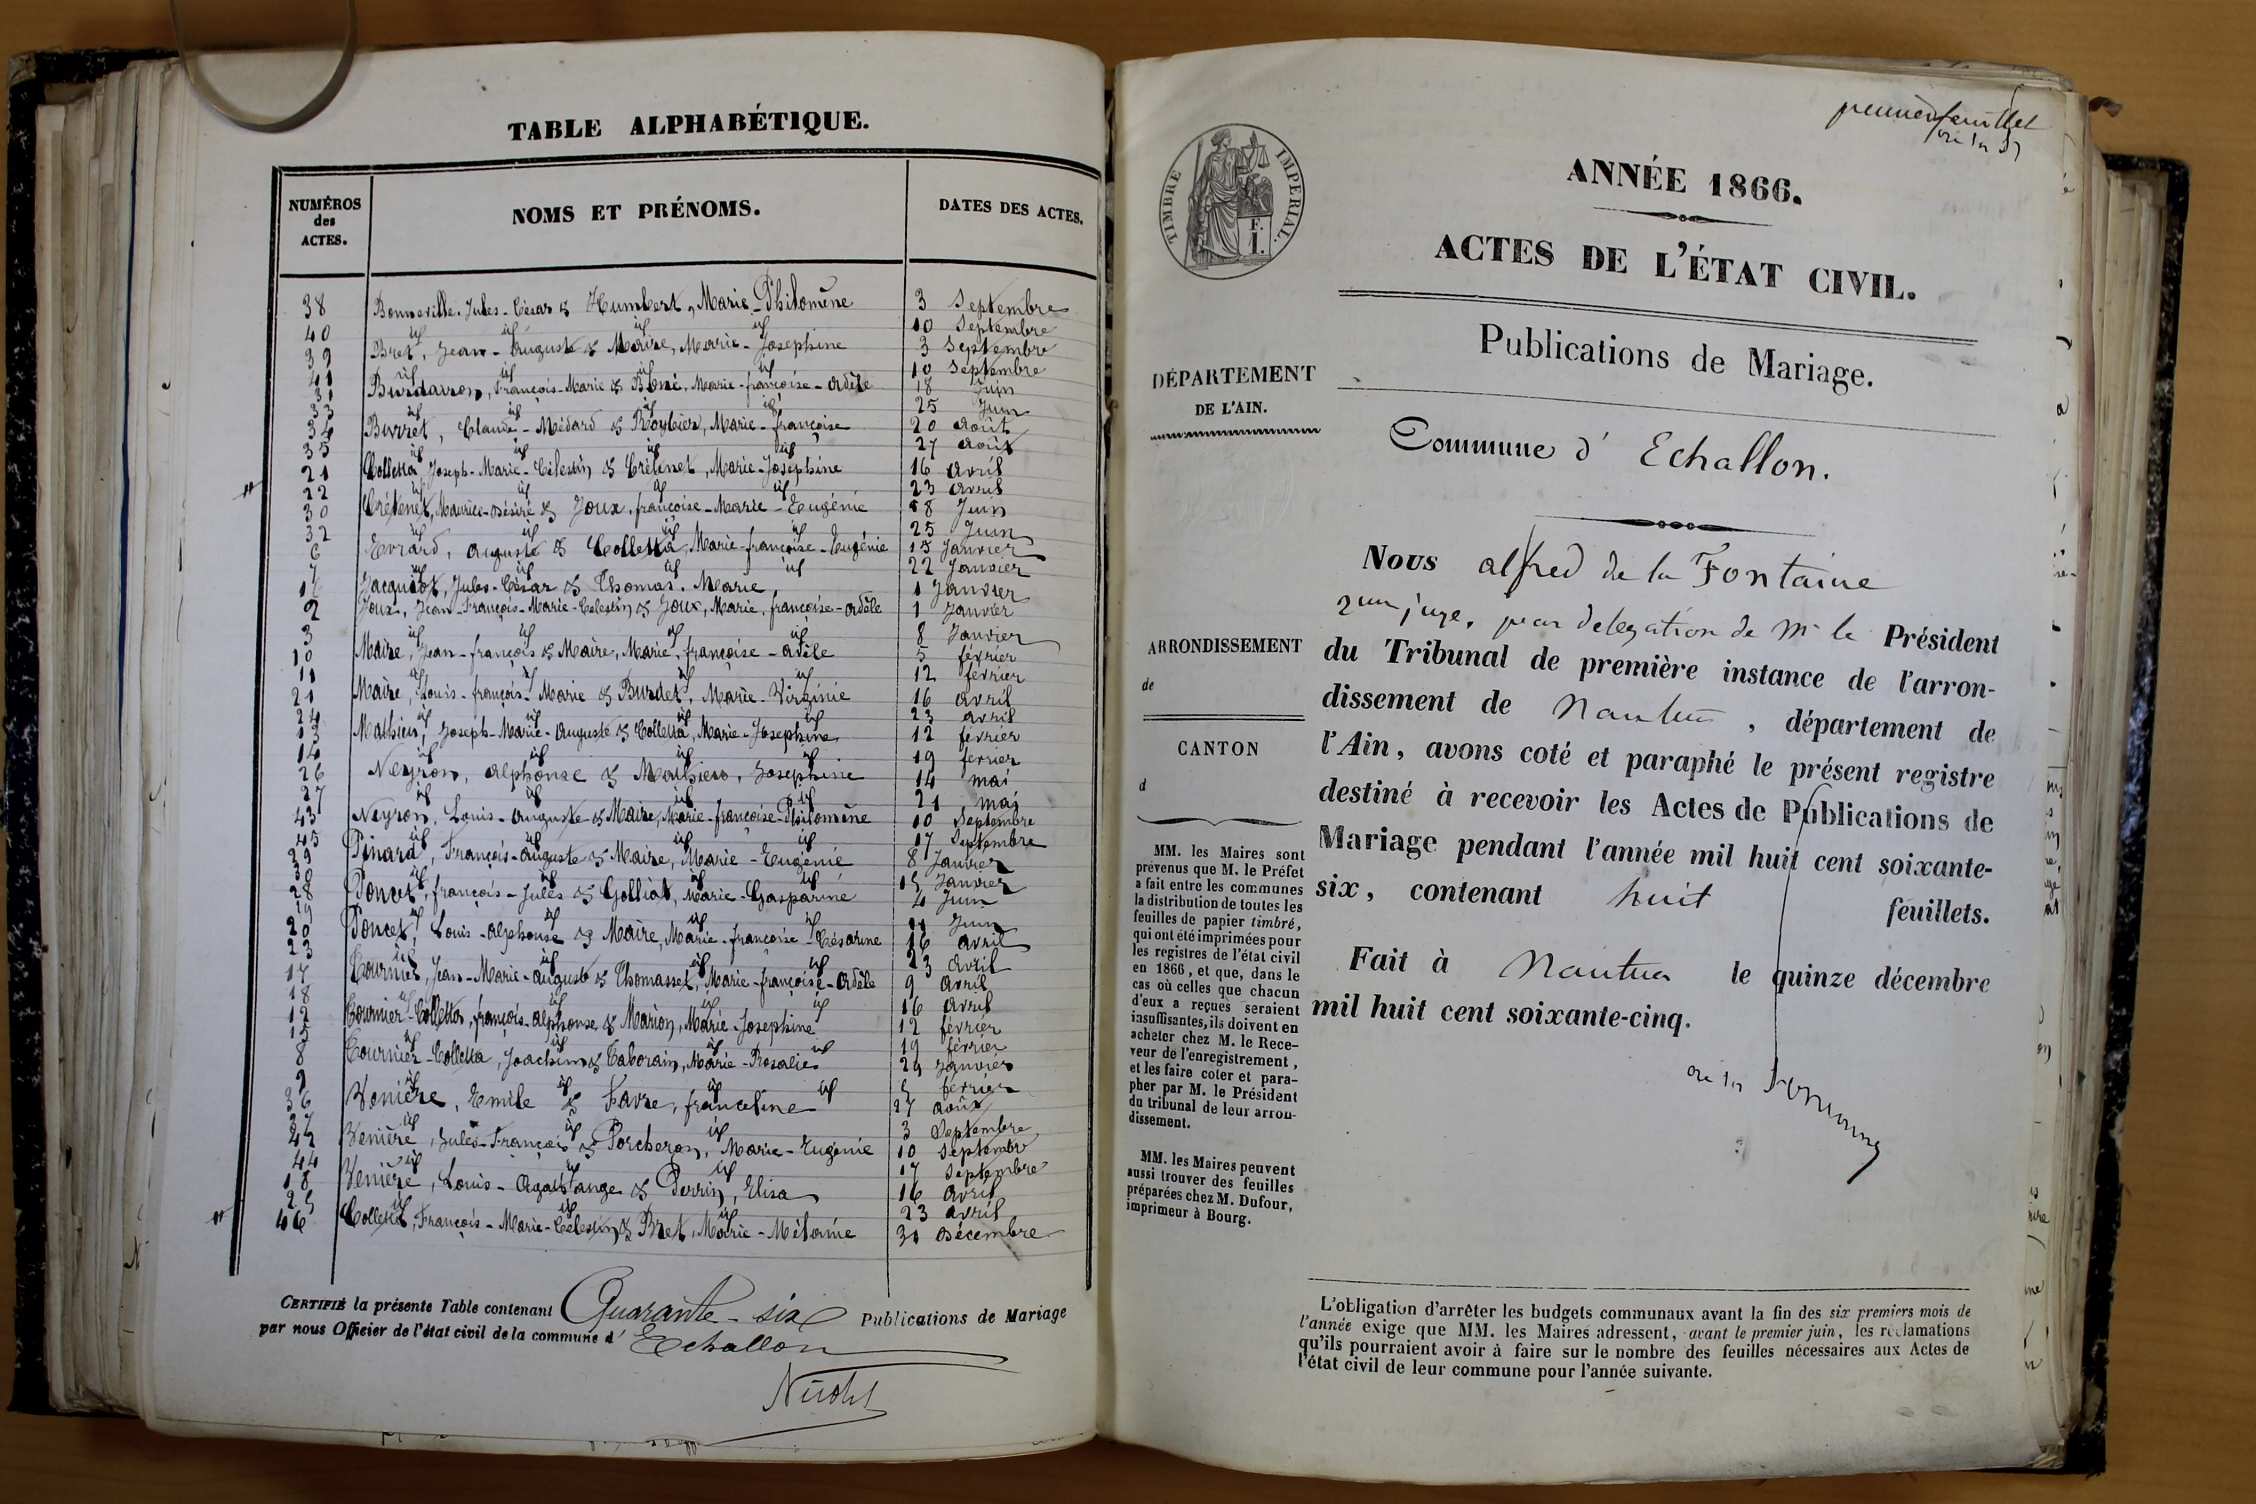 TABLE ALPHABÉTIQUE.
NUMÉROS des ACTES.
NOMS ET PRÉNOMS.
DATES DES ACTES.
38 Bonneville, Jules-César & Humbert, Marie-Philomène 3 Septembre
40 id id id id 10 Septembre
39 Bret, Jean-Auguste & Maire, Marie-Josephine 3 Septembre
41 id id id id 10 Septembre
31 François-Marie & Marie-françoise-Adèle 18 Juin
33 id id id id 25 Juin
34 Burdet, Claude-Médard & Marie-françoise 20 Août
35 id id id id 27 Août
21 Colletta Joseph-Marie-Célestin & Crétenet, Marie-Josephine 16 avril
22 id id id id 23 avril
30 Crétenet, Maurice-Désiré & Joux, françoise-Marie-Eugénie 18 Juin
32 id id id id 25 Juin
6 Evrard, Auguste & Colletta, Marie-françoise-Eugénie 15 Janvier
7 id id id id 22 Janvier
Jules-César & Thomas, Marie 1 Janvier
2 Joux, Jean-François-Marie-Celestin & Joux, Marie, françoise-Adèle 1 Janvier
3 id id id id 8 Janvier
10 Maire, Jean-françois & Maire, Marie, françoise-Adèle 5 février
11 id id id id 12 février
21 Maire, Louis-françois-Marie & Burdet, Marie-Virginie 16 avril
24 id id id id 23 avril
13 Mathieu, Joseph-Marie-Auguste & Colletta, Marie-Josephine 12 février
14 id id id id 19 février
26 Neyron, Alphonse & Mathieu, Josephine 14 mai
27 id id id id 21 mai
43 Neyron, Louis-Auguste & Maire, Marie-françoise-Philomène 10 Septembre
45 id id id id 17 Septembre
Pinard, François-Auguste & Maire, Marie-Eugénie 8 Janvier
id id id id 15 Janvier
28 Poncet, françois-Jules & Golliat, Marie-Gasparine 4 Juin
id id id id 11 Juin
20 Poncet, Louis-Alphonse & Maire, Marie-françoise-Césarine 16 avril
23 id id id id 23 avril
17 Tournier, Jean-Marie-Auguste & Thomasset, Marie-françoise-Adèle 9 avril
18 id id id id 16 avril
12 Tournier-Colletta, françois-Alphonse & Marion, Marie-Josephine 12 février
15 id id id id 19 février
8 Tournier-Colletta, Joachim & Taborain, Marie-Rosalie 29 Janvier
9 id id id id 5 février
36 Venière, Emile & Favre, franceline 27 Août
37 id id id 3 Septembre
42 Venière, Jules-François & Porcheron, Marie-Eugénie 10 Septembre
44 id id id 17 Septembre
18 Venière, Louis & Perrin, Elisa 16 avril
25 id id id 23 avril
46 Colletta, François-Marie-Célestin & Bret, Marie-Mélanie 30 Décembre
CERTIFIÉ la présente Table contenant Quarante-six Publications de Mariage
par nous Officier de l'état civil de la commune d'Echallon
premier feuillet
TIMBRE IMPERIAL.
1 F.
ANNÉE 1866.
ACTES DE L'ÉTAT CIVIL.
Publications de Mariage.
DÉPARTEMENT
DE L'AIN.
Commune d'Echallon.
ARRONDISSEMENT
de
CANTON
d
Nous alfred de la Fontaine
juge, par delegation de Mr le Président
du Tribunal de première instance de l'arron-
dissement de Nantua, département de
l'Ain, avons coté et paraphé le présent registre
destiné à recevoir les Actes de Publications de
Mariage pendant l'année mil huit cent soixante-
six, contenant huit feuillets.
Fait à Nantua le quinze décembre
mil huit cent soixante-cinq.
MM. les Maires sont
prévenus que M. le Préfet
a fait entre les communes
la distribution de toutes les
feuilles de papier timbré,
qui ont été imprimées pour
les registres de l'état civil
en 1866, et que, dans le
cas où celles que chacun
d'eux a reçues seraient
insuffisantes, ils doivent en
acheter chez M. le Rece-
veur de l'enregistrement,
et les faire coter et para-
pher par M. le Président
du tribunal de leur arron-
dissement.
MM. les Maires peuvent
aussi trouver des feuilles
préparées chez M. Dufour,
imprimeur à Bourg.
L'obligation d'arrêter les budgets communaux avant la fin des six premiers mois de
l'année exige que MM. les Maires adressent, avant le premier juin, les réclamations
qu'ils pourraient avoir à faire sur le nombre des feuilles nécessaires aux Actes de
l'état civil de leur commune pour l'année suivante.